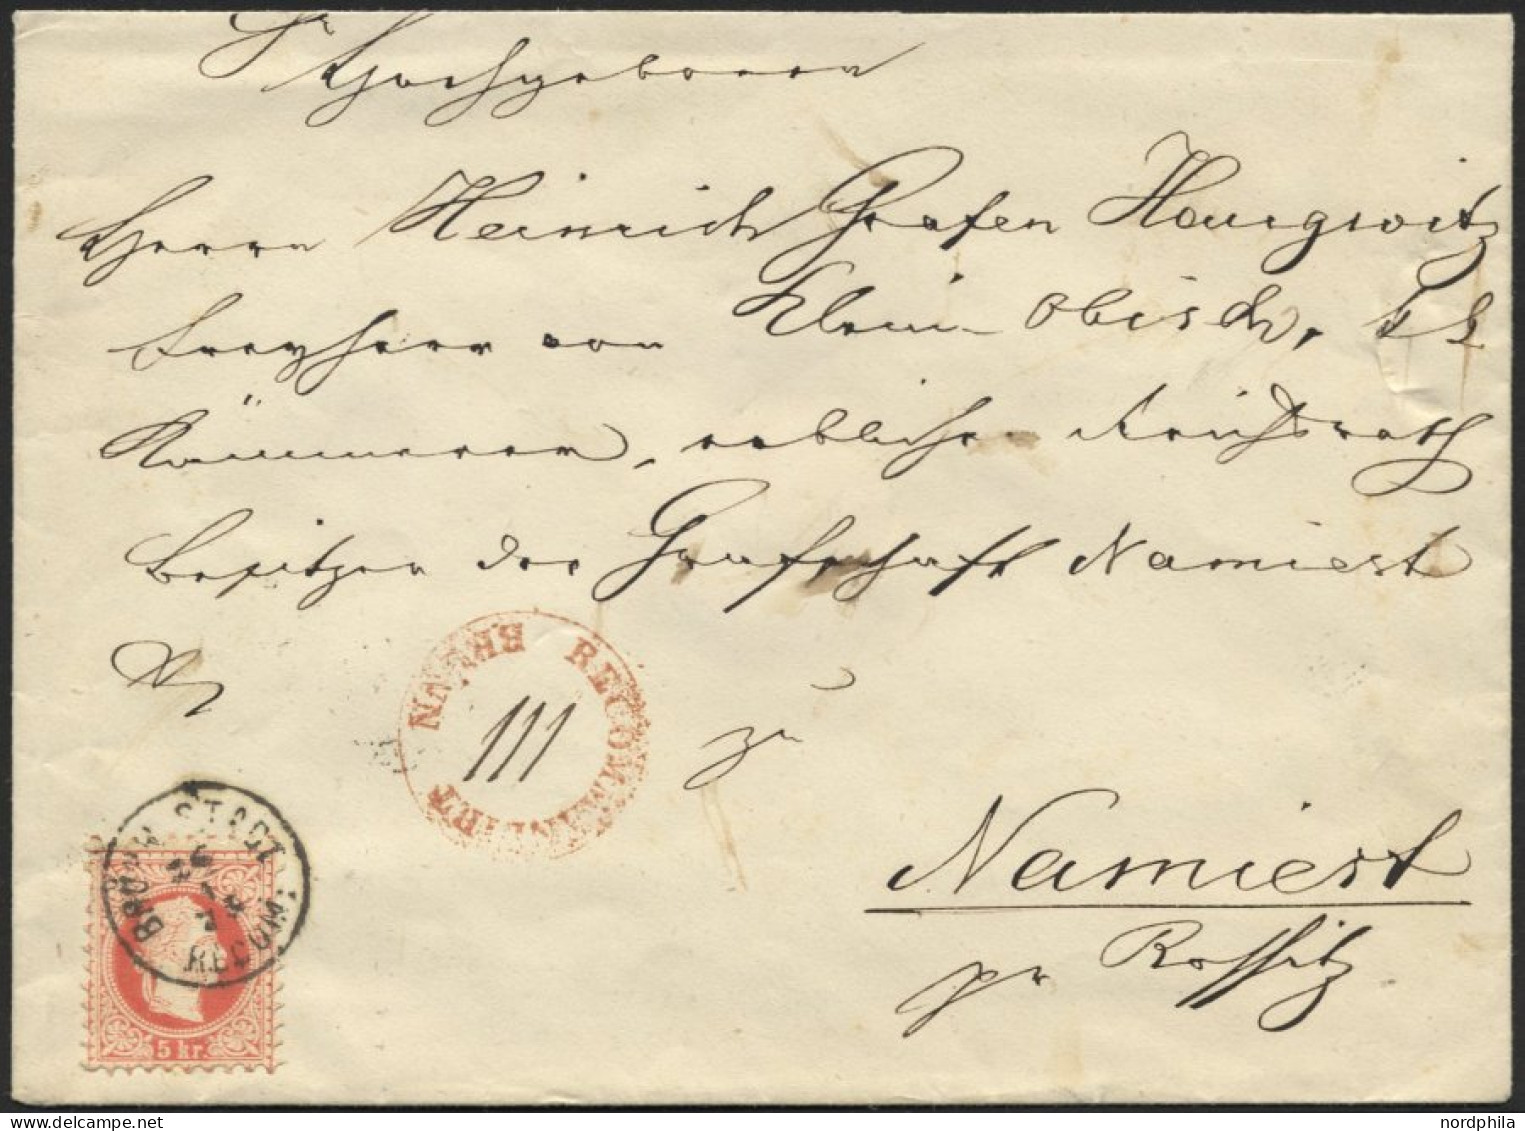 Sr Hochgeboren
Herrn Heinrich Grafen Haugwitz
Freyherr von Klein Obisch, k k
Kämmerer, erbliche Reichsrath
Besitzer der Grafschaft Namiest
RECOMMANDIRT BRÜNN
III
zu
Namiest
pr Rossitz
BRÜNN STADT RECOM.
26
1
5 kr.
nordphila